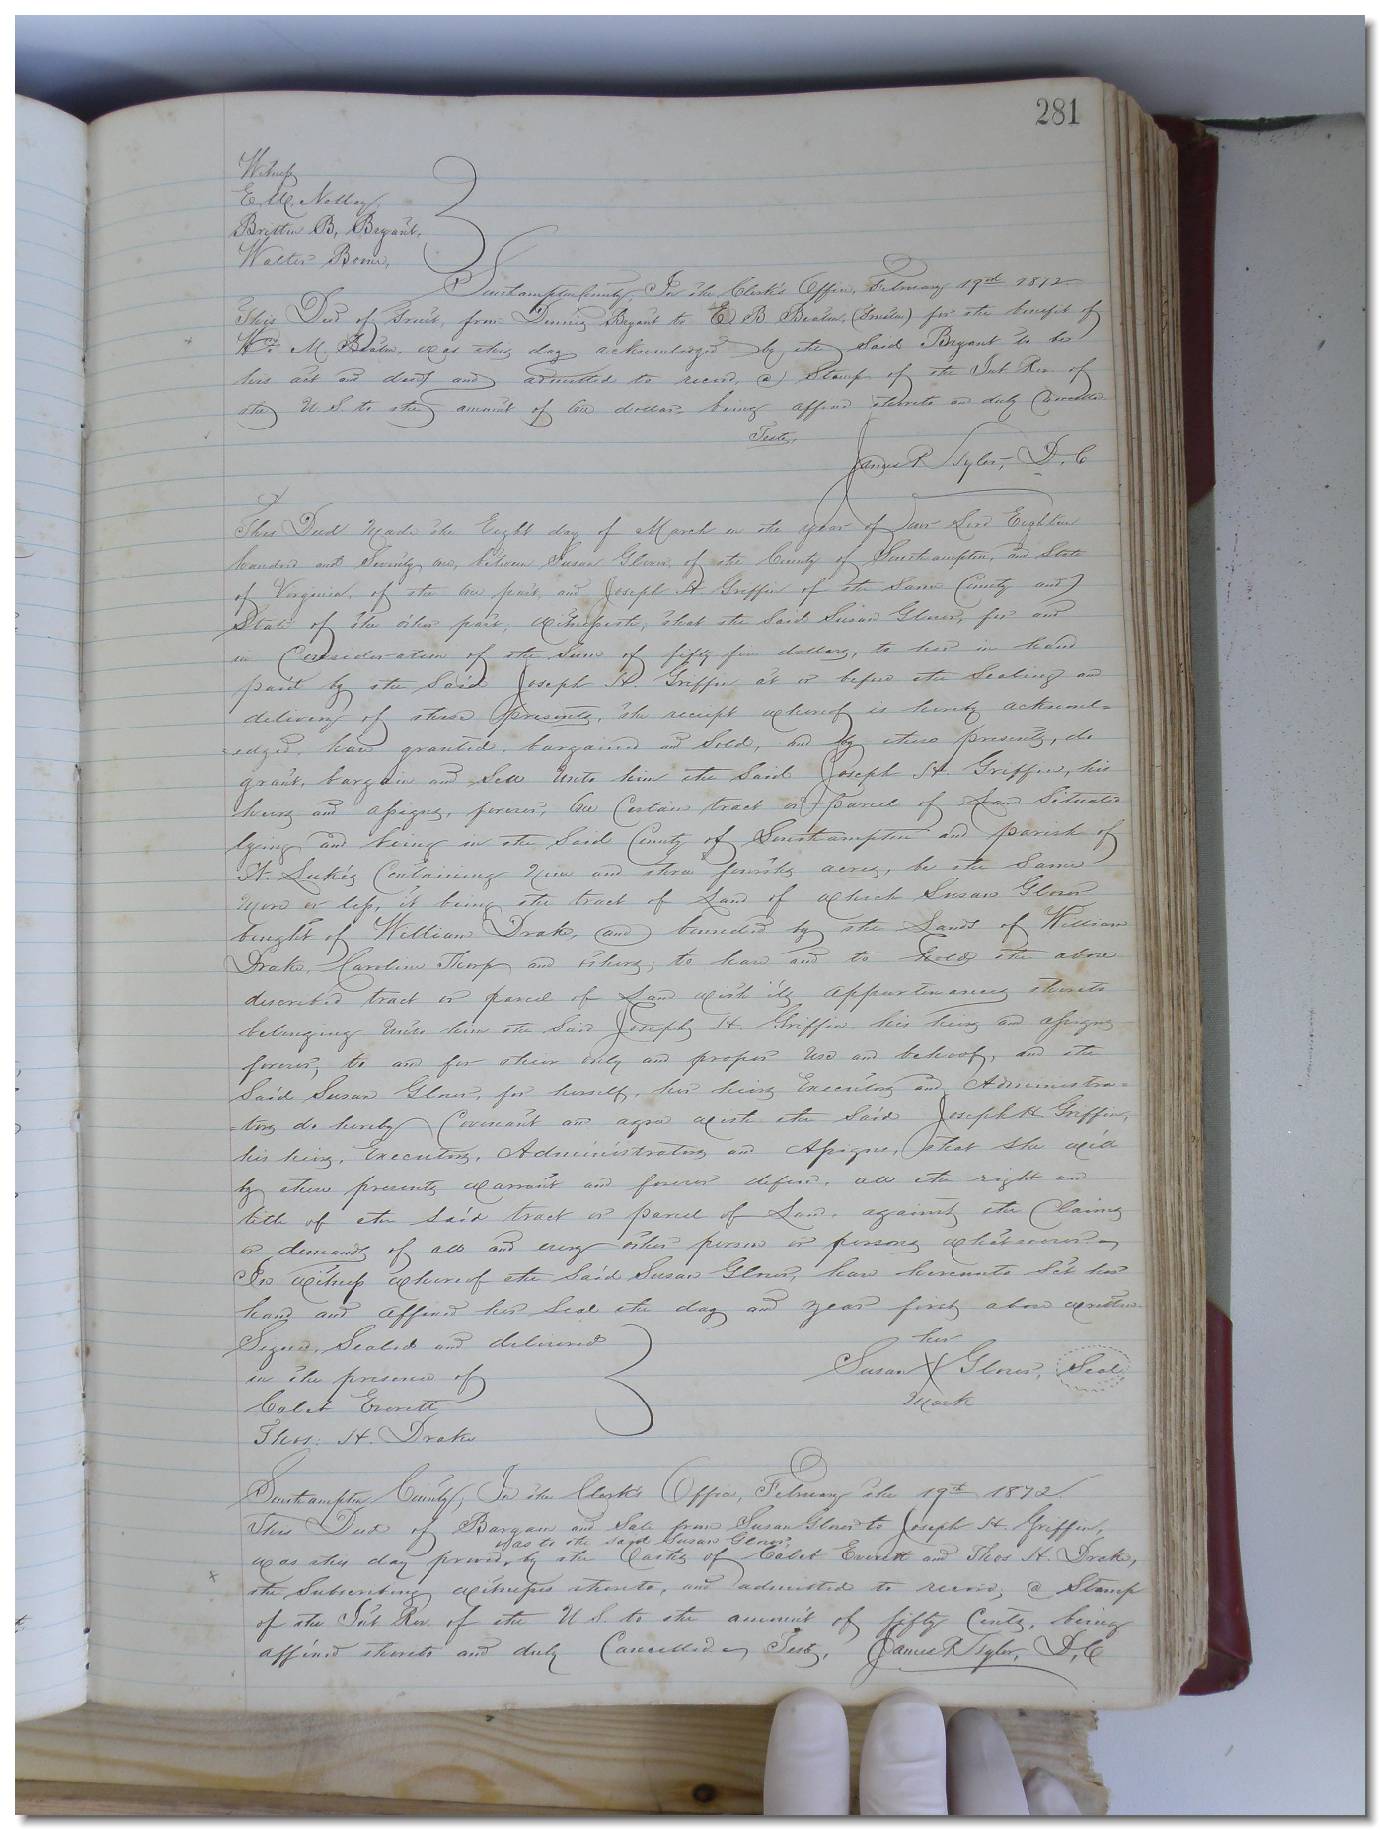 281
Witness
E. W. Nolley,
Britton B. Bryant.
Walter Boone,
Southampton County, In the Clerk's Office, February 19th 1872
This Deed of Trust, from Dennis Bryant to E B Beaton, (Trustee) for the benefit of
Wm. M. Beaton, was this day acknowledged by the Said Bryant to be
his act and deed, and admitted to record, a Stamp of the Int Rev of
the U. S. to the amount of One dollar being affixed thereto and duly Cancelled
Teste,
James R Tyler, D. C
This Deed Made the Eight day of March in the year of our Lord Eighteen
hundred and Seventy one, between Susan Glover, of the County of Southampton, and State
of Virginia, of the One part, and Joseph H Griffin of the Same County and
State of the other part; Witnesseth, that the Said Susan Glover, for and
in Consideration of the Sum of fifty five dollars, to her in hand
paid by the Said Joseph H. Griffin at or before the Sealing and
delivery of these presents, the receipt whereof is hereby acknowl=
=edged, have granted, bargained and Sold, and by these presents, do
grant, bargain and Sell Unto him the Said Joseph H. Griffin, his
heirs and assigns, forever, One Certain tract or parcel of Land Situated
lying and being in the Said County of Southampton and parish of
St. Luke's Containing Nine and three fourths acres, be the Same
More or less, it being the tract of Land of which Susan Glover
bought of William Drake, and bounded by the Lands of William
Drake, Caroline Thorp and others; to have and to hold the above
described tract or parcel of Land with its appurtenances thereto
belonging Unto him the Said Joseph H. Griffin his heirs and assigns
forever, to and for their only and proper Use and behoof, and the
Said Susan Glover, for herself, her heirs Executors and Administra=
=tors do hereby Covenant and agree with the Said Joseph H Griffin,
his heirs, Executors, Administrators and Assigns, that She will
by these presents warrant and forever defend, all the right and
title of the Said tract or parcel of Land, against the Claims
or demands of all and every other person or persons whatsoever
In Witness whereof the Said Susan Glover, have hereunto Set her
hand and affixed her Seal the day and year first above written
Signed, Sealed and delivered
in the presence of
Calet Everett
Thos: H. Drake
her
Susan X Glover, Seal
Mark
Southampton County, In the Clerk's Office, February the 19th 1872.
This Deed of Bargain and Sale from Susan Glover to Joseph H. Griffin,
as to the said Susan Glover,
was this day proved, by the Oaths of Calet Everett and Thos H. Drake,
the Subscribing Witnesses thereto, and admitted to record; a Stamp
of the Int Rev. of the U S. to the amount of fifty Cents, being
affixed thereto and duly Cancelled Teste, James R Tyler, D. C